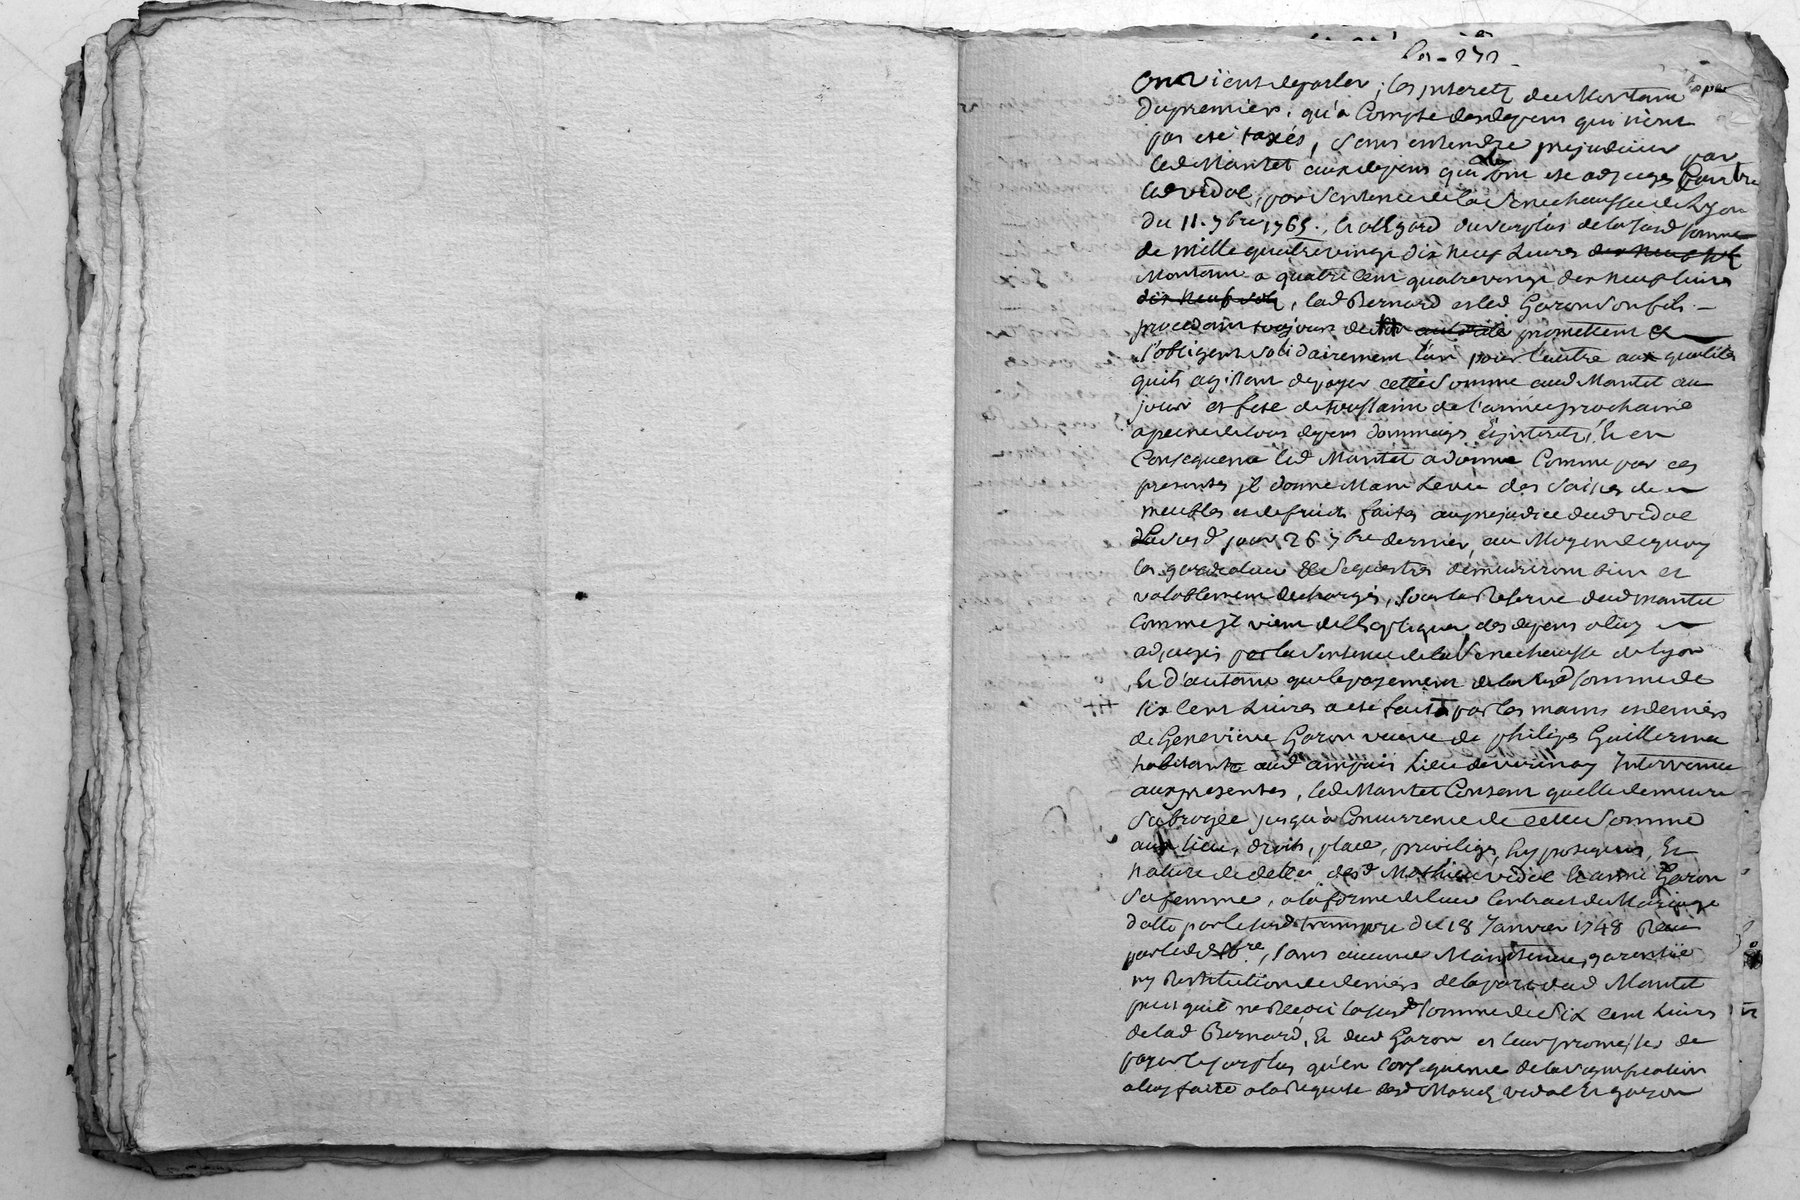 on vient deparler, les jnterets dud Montant
dupremier, qu'a Compte desdepens qui n'ont
pas eté taxés, sans entendre prejudicier par
led Mantet aux depens qui luy ont eté adjuges Contre
led vidal, par Sentence de la Senechaussée de Lyon
du 11. 7bre 1765., Et all'Egard du surplus de lasusd somme
de mille quatrevingt dix neuf Livres
Montant a quatre Cent quatrevingt dix neuf livres
dix neuf sols, lad Bernard et led Garon son fils
procedant toujours de promettent et
s'obligent solidairement l'un pour l'autre aux qualités
quils agissent depayer cette somme aud Mantet au
jour et feste de toussaint de l'année prochaine
apeine de tous depens dommages Et jnterets, Et en
Consequence led Mantet adonné Comme par ces
presentes jl donne Main Levée des Saisies de
meubles et de fruits faites auprejudice dud vidal
ledit jour 26 7bre dernier, au Moyen dequoy
les gardiateurs Et Sequestres demeureront bien et
valablement dechargés, sous la Reserve dud mantet
Comme jl vient dell'Expliquer, des depens aluy
adjugés par la Sentence de la Senechaussée de lyon
Et d'autant que lepayement de la susd somme de
six Cent Livres a eté fait par les mains et deniers
de Genevieve Garon veuve de philipe Guillerme
habitante aud ampuis Lieu de verenay Intervenue
aux presentes, led Mantet Consent quelle demeure
Subrogée jusqu'a Concurrence de cette Somme
aux lieu, droits, place, privilege, hypoteques, Et
nature de dette desd Mathieu vidal Et anne Garon
Sa femme, a la forme de leur Contract de Mariage
datte par le susd transport du 18 Janvier 1748 Reçu
par led Nre, sans aucune Maintenue, garentie
ny Restitution de deniers de la part dud Mantet
puis quil ne Reçoit la susd somme de Six Cent Livres
de lad Bernard, Et dud Garon et leur promesse de
payer le surplus qu'en Consequence de la signification
aluy faite a la Requete desd Mariés vidal Et garon